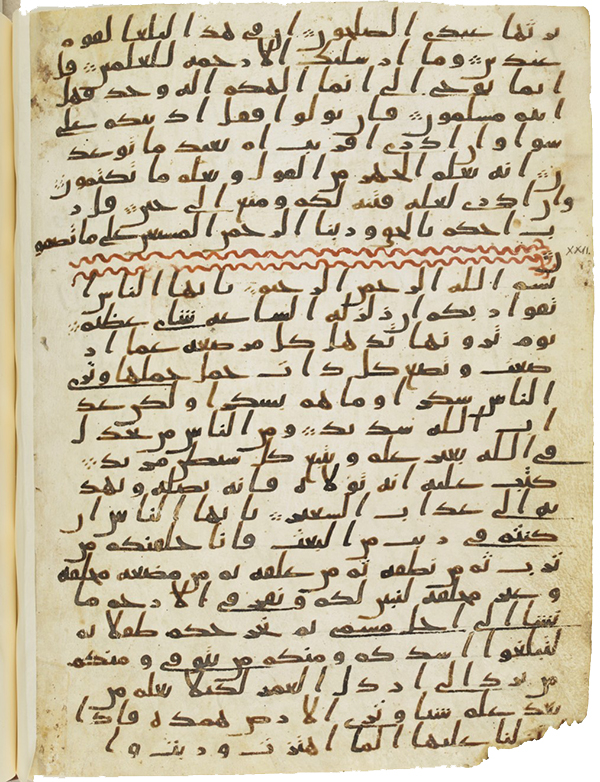 يرثها عبدى الصلحون ان فى هذا لبلغا لقوم
عبدين وما ارسلنك الا رحمه للعلمين قل
انما يوحى الى انما الهكم اله وحد فهل
انتم مسلمون فان تولوا فقل اذنتكم على
سوا وان ادرى اقريب ام بعيد ما توعد
ون انه يعلم الجهر من القول و يعلم ما تكتمون
وان ادرى لعله فتنه لكم ومتع الى حين قل ر
ب احكم بالحق وربنا الرحمن المستعن على ما تصفو
ن
XXII.
بسم الله الرحمن الرحيم يايها الناس ا
تقوا ربكم ان زلزله الساعه شاى عظيم
يوم ترونها تذهل كل مرضعه عما ار
ضعت وتضع كل ذات حمل حملها وترى
الناس سكرى وما هم بسكرى ولكن عذ
اب الله شديد ومن الناس من يجدل
فى الله بغير علم ويتبع كل شيطن مريد
كتب عليه انه تولاه فانه يضله ويهد
يه الى عذاب السعير يايها الناس ان
كنتم فى ريب من البعث فانا خلقنكم من
تراب ثم من نطفه ثم من علقه ثم من مضغه مخلقه
وغير مخلقه لنبين لكم ونقر فى الارحم ما
نشا الى اجل مسمى ثم نخرجكم طفلا ثم
لتبلغوا اشدكم ومنكم من يتوفى ومنكم
من يرد الى ارذل العمر لكيلا يعلم من
بعد علم شيا وترى الارض همده فاذا
انزلنا عليها الما اهتزت وربت وا